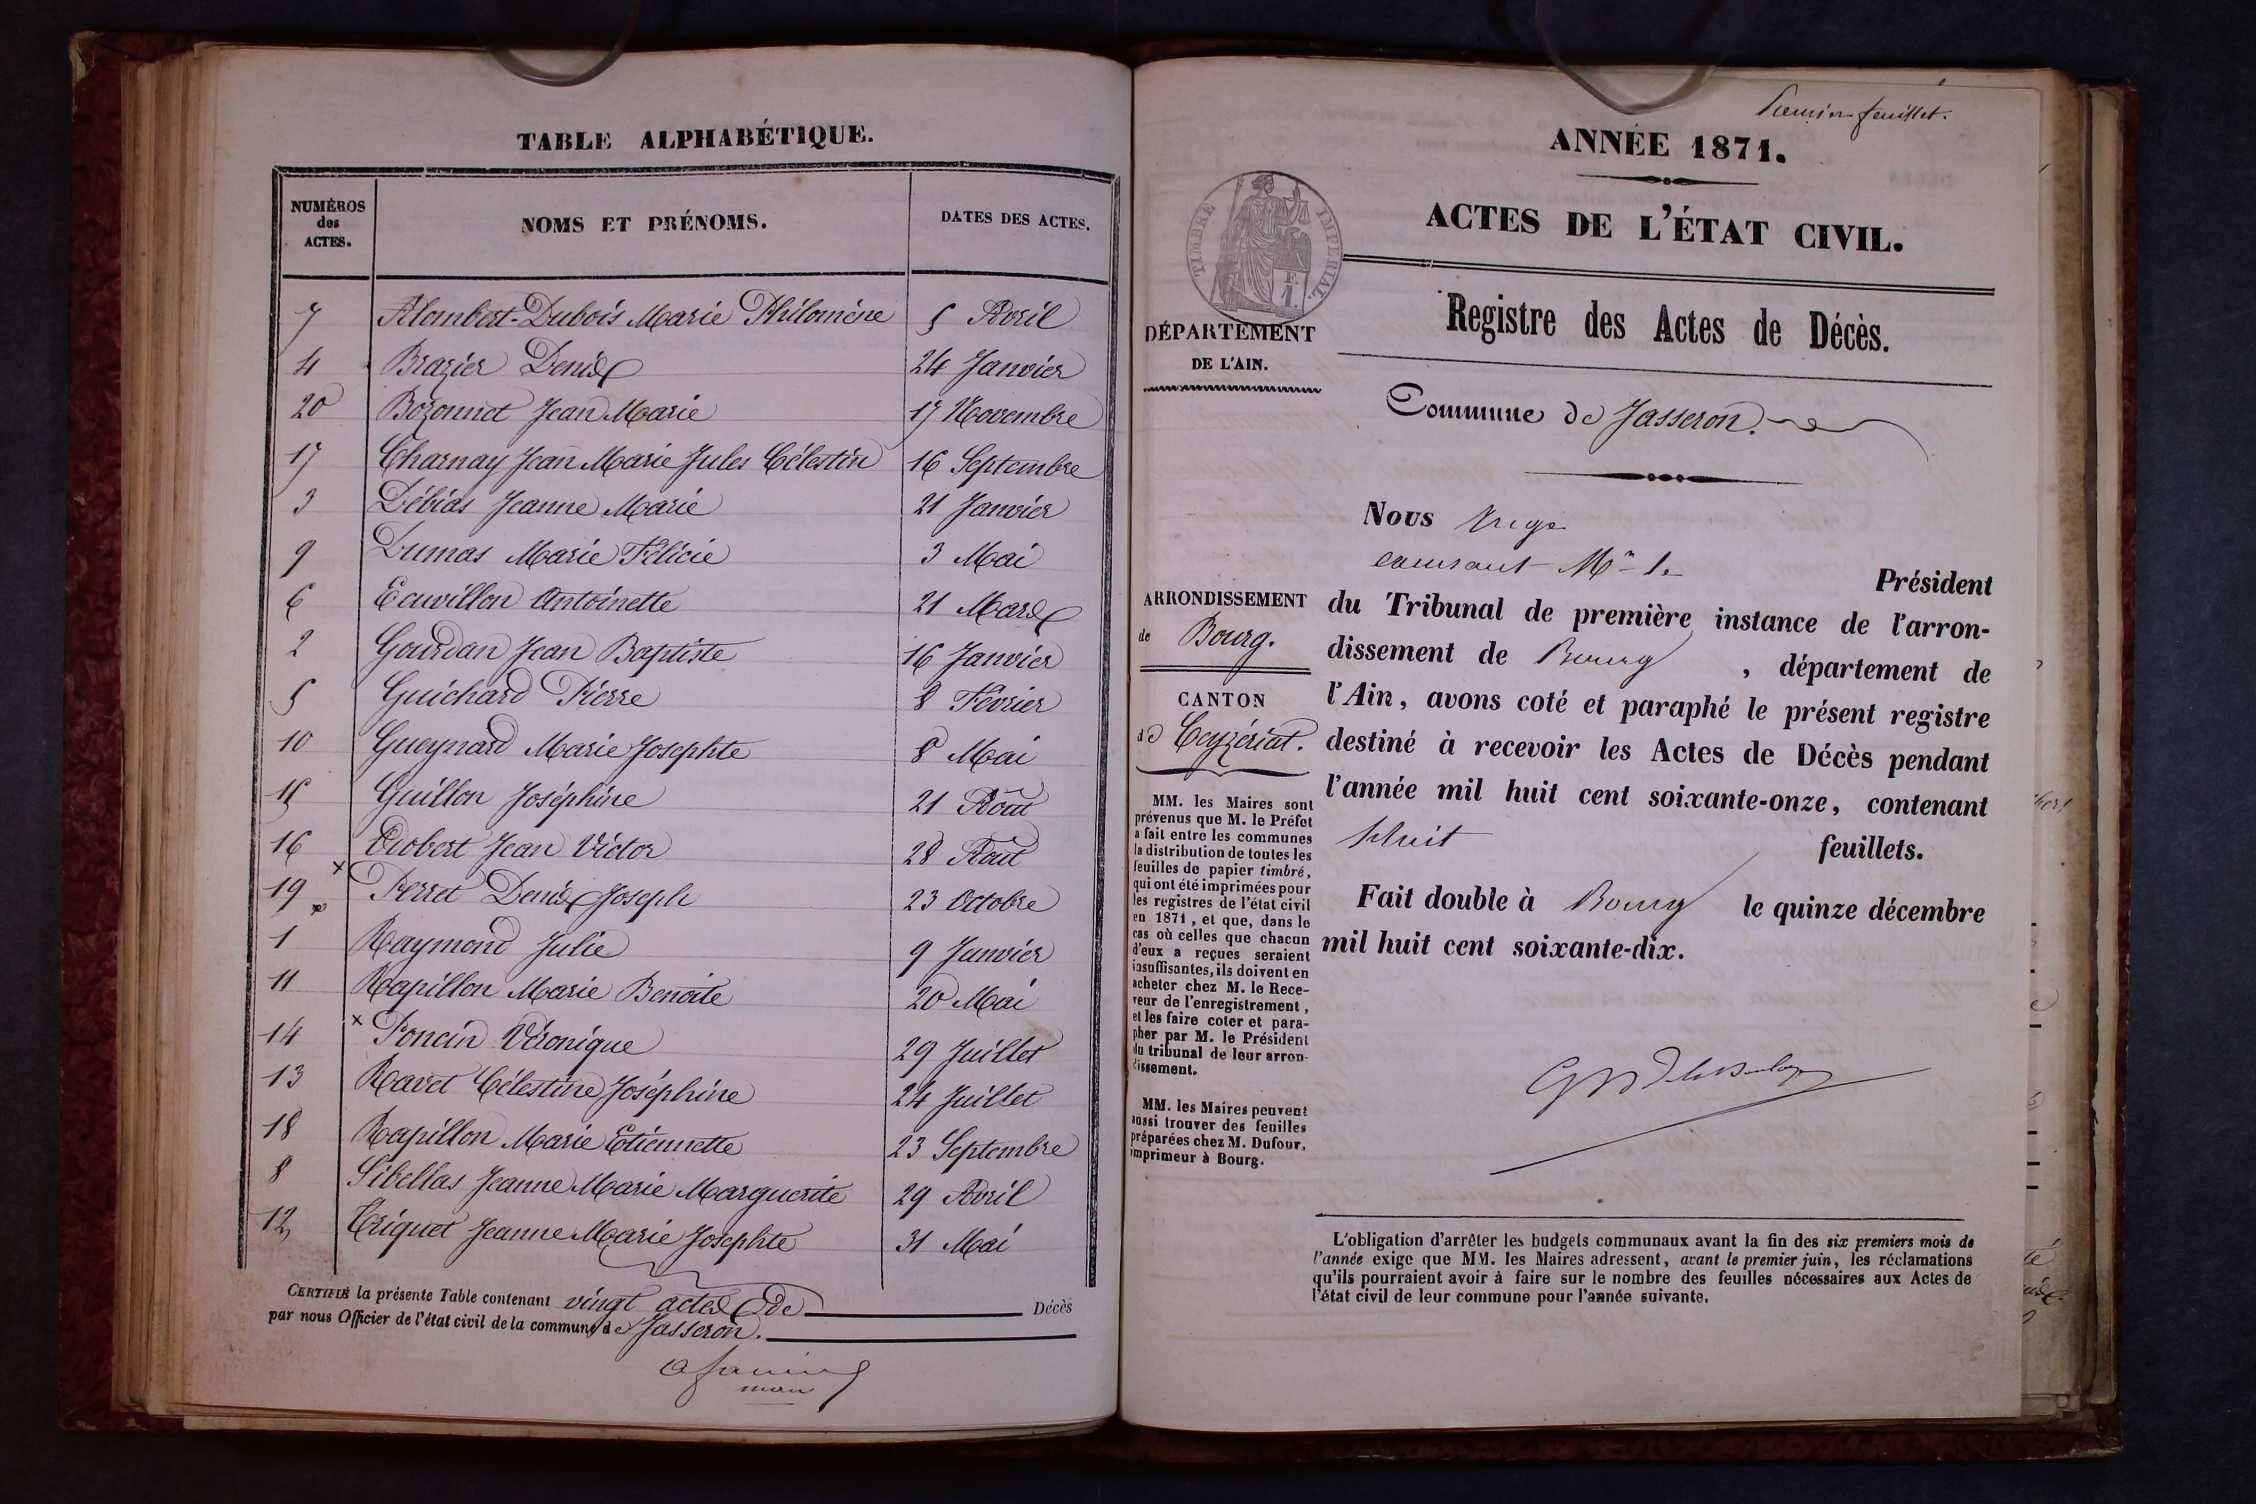 TABLE ALPHABÉTIQUE.
NUMÉROS des ACTES. NOMS ET PRÉNOMS. DATES DES ACTES.
7 Alombert-Dubois Marie Philomène 5 Avril
4 Brazier Denis 24 Janvier
20 Bozonnet Jean Marie 17 Novembre
17 Charnay Jean Marie Jules Célestin 16 Septembre
3 Débias Jeanne Marie 21 Janvier
9 Dumas Marie Félicie 3 Mai
6 Ecuvillon Antoinette 21 Mars
2 Gourdan Jean Baptiste 16 Janvier
5 Guichard Pierre 8 Février
10 Gueynard Marie Josephte 8 Mai
15 Guillon Joséphine 21 Août
16 Orobert Jean Victor 28 Août
19 x Perret Denis Joseph 23 Octobre
1 Raymond Julie 9 Janvier
11 Rapillon Marie Benoite 20 Mai
14 x Poncin Véronique 29 Juillet
13 Ravet Célestine Joséphine 24 Juillet
18 Rapillon Marie Etiennette 23 Septembre
8 Sibellas Jeanne Marie Marguerite 29 Avril
12 Triquet Jeanne Marie Josephte 31 Mai
CERTIFIÉ la présente Table contenant vingt actes de Décès
par nous Officier de l'état civil de la commune de Jasseron.
Premier feuillet.
ANNÉE 1871.
ACTES DE L'ÉTAT CIVIL.
TIMBRE IMPÉRIAL
F. 1.
Registre des Actes de Décès.
DÉPARTEMENT
DE L'AIN.
Commune de Jasseron.
ARRONDISSEMENT
de Bourg.
CANTON
de Ceyzériat.
MM. les Maires sont
prévenus que M. le Préfet
a fait entre les communes
la distribution de toutes les
feuilles de papier timbré,
qui ont été imprimées pour
les registres de l'état civil
en 1871, et que, dans le
cas où celles que chacun
d'eux a reçues seraient
insuffisantes, ils doivent en
acheter chez M. le Rece-
veur de l'enregistrement,
et les faire coter et para-
pher par M. le Président
du tribunal de leur arron-
dissement.
MM. les Maires peuvent
aussi trouver des feuilles
préparées chez M. Dufour,
imprimeur à Bourg.
Nous Juge
Mr le Président
du Tribunal de première instance de l'arron-
dissement de Bourg, département de
l'Ain, avons coté et paraphé le présent registre
destiné à recevoir les Actes de Décès pendant
l'année mil huit cent soixante-onze, contenant
huit feuillets.
Fait double à Bourg le quinze décembre
mil huit cent soixante-dix.
L'obligation d'arrêter les budgets communaux avant la fin des six premiers mois de
l'année exige que MM. les Maires adressent, avant le premier juin, les réclamations
qu'ils pourraient avoir à faire sur le nombre des feuilles nécessaires aux Actes de
l'état civil de leur commune pour l'année suivante.